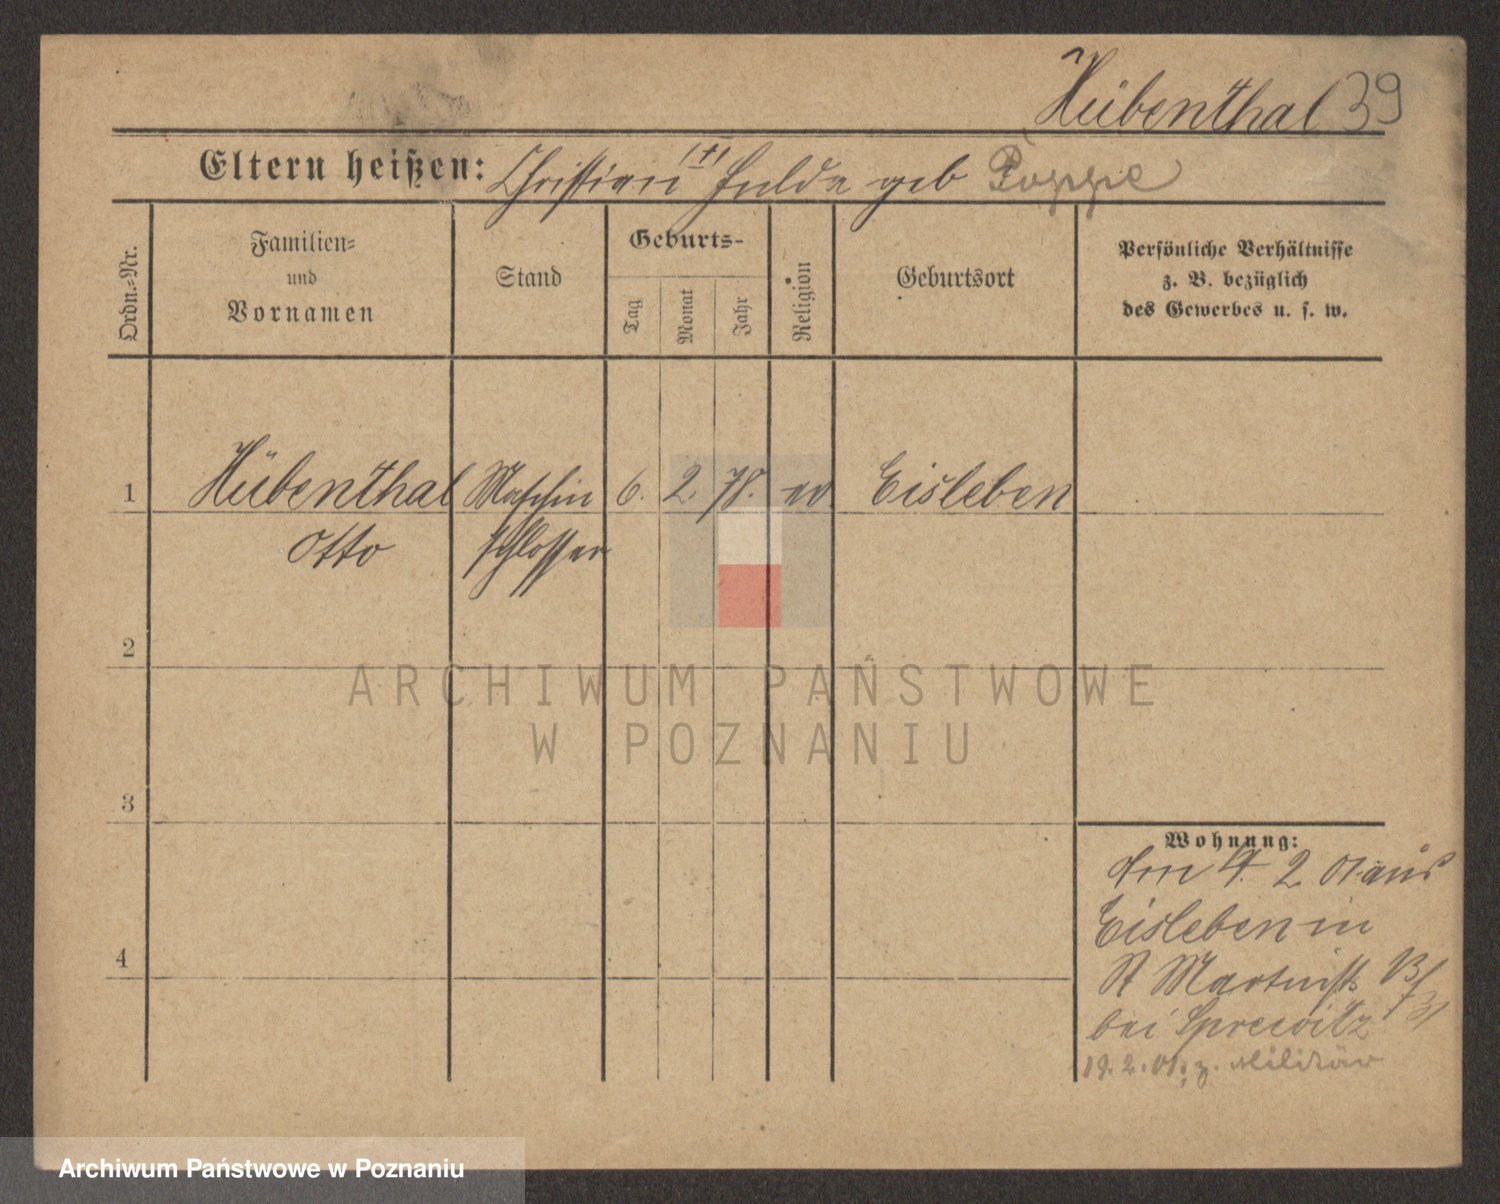 Hübenthal 39
Eltern heißen: Christian (†) Hulda geb Poppe
Ordn.-Nr.
Familien-
und
Vornamen
Stand
Geburts-
Tag
Monat
Jahr
Religion
Geburtsort
Persönliche Verhältnisse
z. B. bezüglich
des Gewerbes u. s. w.
1 Hübenthal Maschin 6. 2. 78. ev Eisleben
Otto schlosser
2
3
4
Wohnung:
Am 4. 2 01 aus
Eisleben in
St Martinstr 13/
31
bei
19. 2. 01. z. Militär
ARCHIWUM PAŃSTWOWE
W POZNANIU
Archiwum Państwowe w Poznaniu